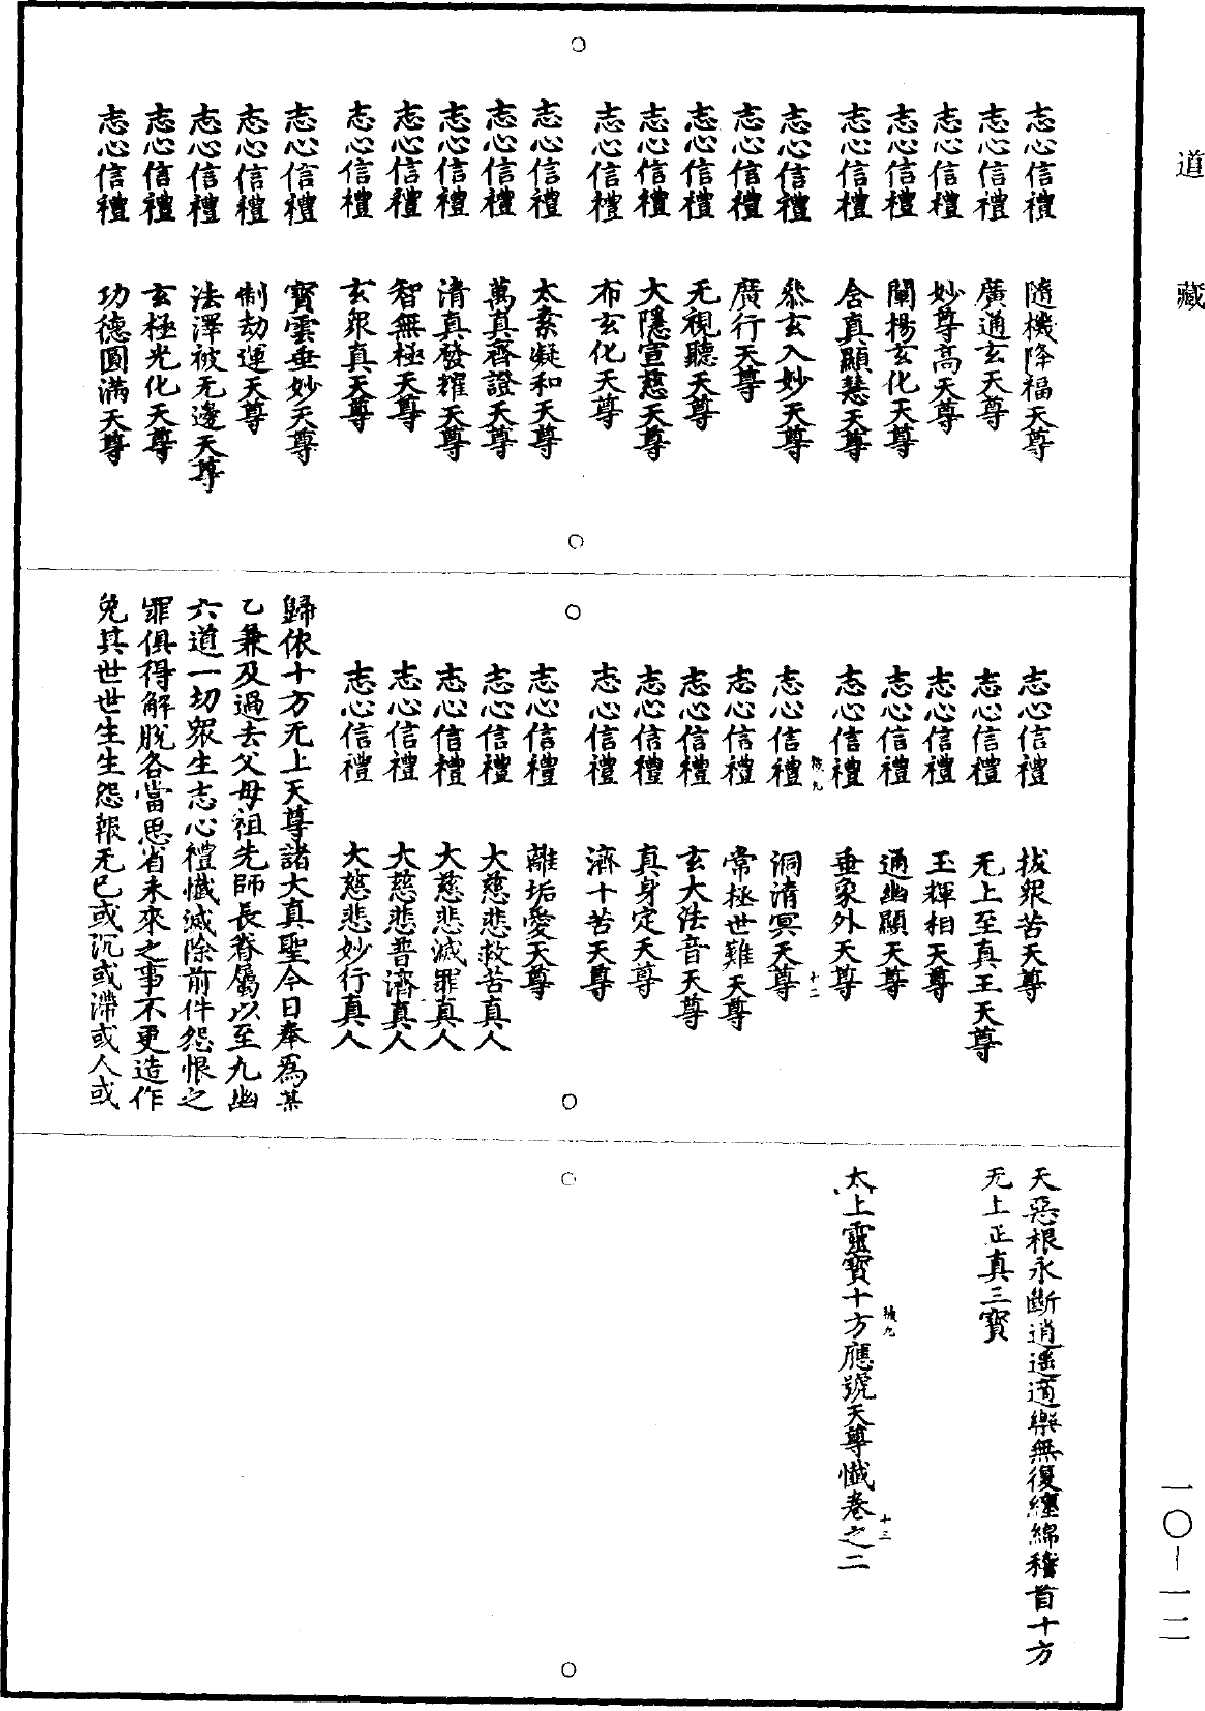 道藏
志心信禮 隨機降福天尊
志心信禮 廣通玄天尊
志心信禮 妙尊高天尊
志心信禮 闡揚玄化天尊
志心信禮 含真顯慧天尊
志心信禮 叅玄入妙天尊
志心信禮 廣行天尊
志心信禮 无視聽天尊
志心信禮 大隱宣慈天尊
志心信禮 布玄化天尊
志心信禮 太素凝和天尊
志心信禮 萬真齊證天尊
志心信禮 清真發耀天尊
志心信禮 智無極天尊
志心信禮 玄眾真天尊
志心信禮 寶雲垂妙天尊
志心信禮 制劫運天尊
志心信禮 法澤被无邊天尊
志心信禮 玄極光化天尊
志心信禮 功德圓滿天尊
志心信禮 拔眾苦天尊
志心信禮 无上至真王天尊
志心信禮 玉輝相天尊
志心信禮 通幽顯天尊
志心信禮 垂象外天尊
號九 十二
志心信禮 洞清冥天尊
志心信禮 常拯世難天尊
志心信禮 玄大法音天尊
志心信禮 真身定天尊
志心信禮 濟十苦天尊
志心信禮 離垢愛天尊
志心信禮 大慈悲救苦真人
志心信禮 大慈悲滅罪真人
志心信禮 大慈悲普濟真人
志心信禮 大慈悲妙行真人
歸依十方无上天尊諸大真聖今日奉為某
乙兼及過去父母祖先師長眷屬以至九幽
六道一切眾生志心禮懺滅除前件怨恨之
罪俱得解脫各當思省未來之事不更造作
免其世世生生怨報无已或沉或滯或人或
天惡根永斷逍遥適樂無復纏綿稽首十方
无上正真三寶
號九 十三
太上靈寶十方應號天尊懺卷之二
一〇－一二